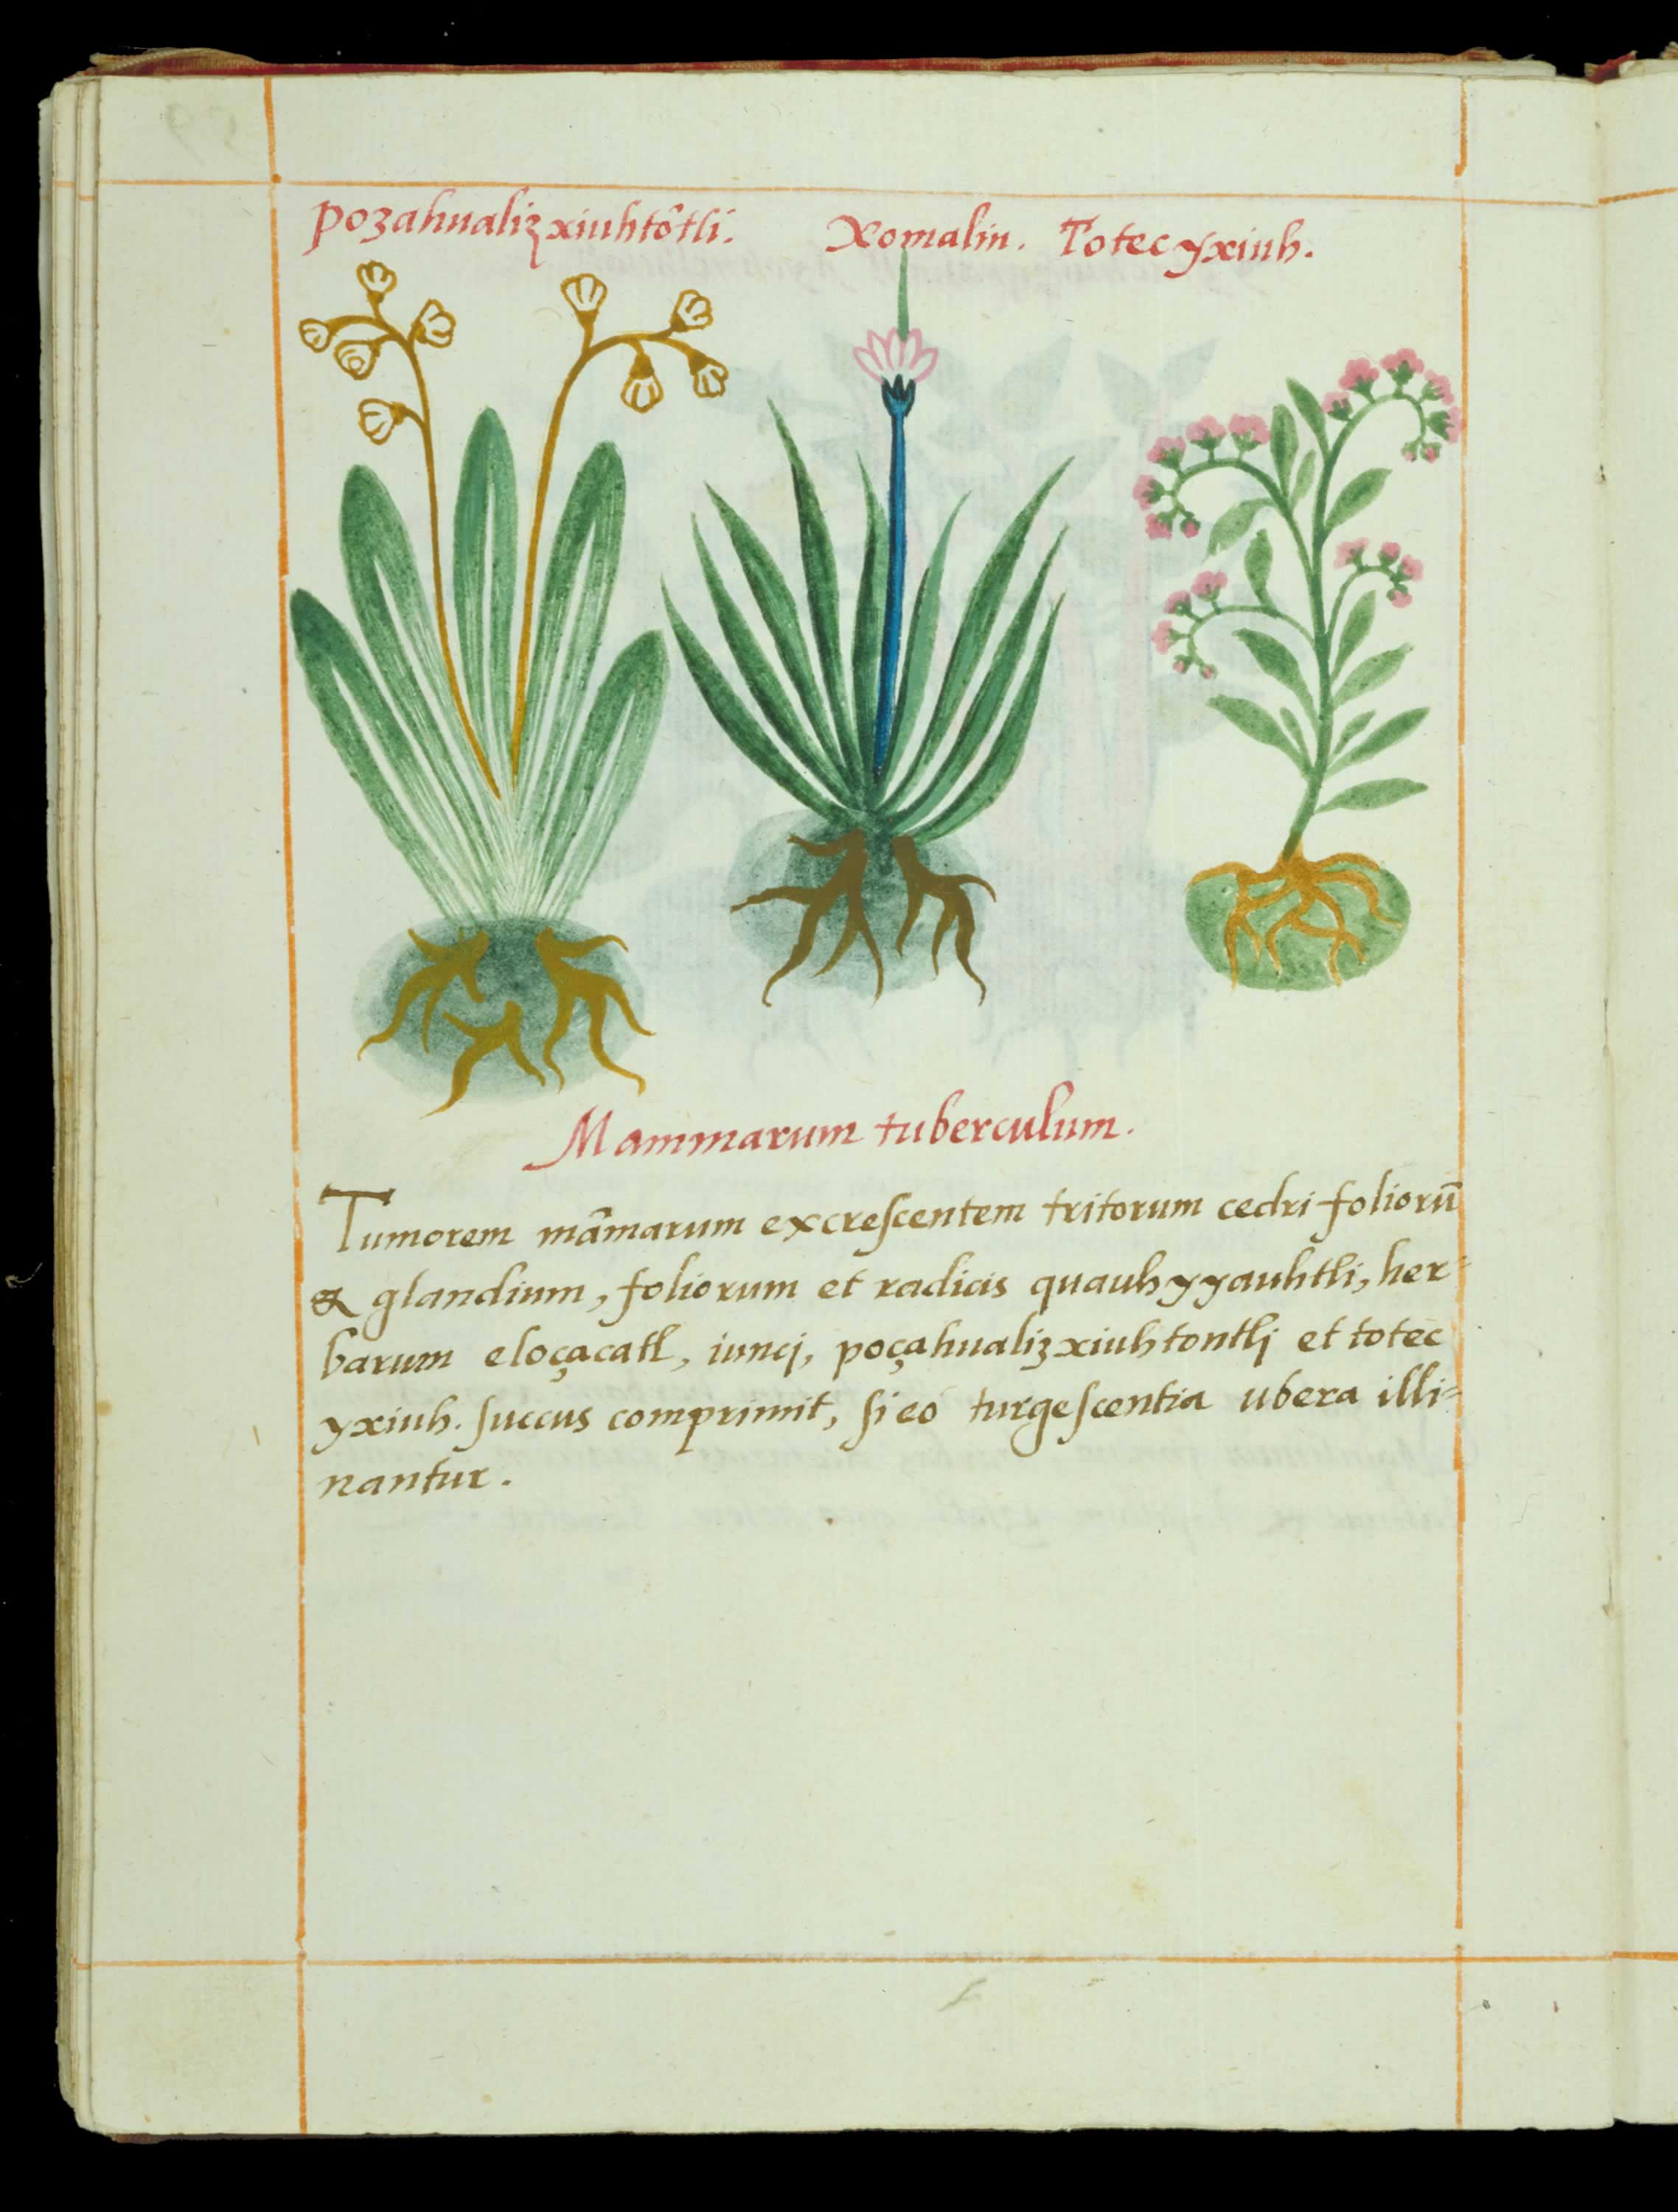 pozahualizxiuhtôtli. Xomalin. Totecyxiuh.
Mammarum tuberculum.
Tumorem mãmarum excreſcentem tritorum cedri foliorũ
& glandium, foliorum et radicis quauhyyauhtli, her-
barum eloçacatl, iuncj, poçahualizxiuhtontlj et totec
yxiuh. ſuccus comprimit, ſi eó turgeſcentia ubera illi-
nantur.